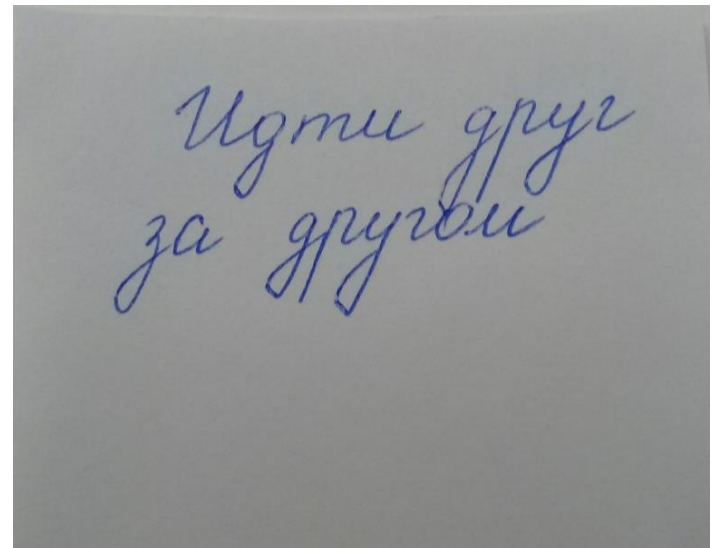 Идти друг
за другом